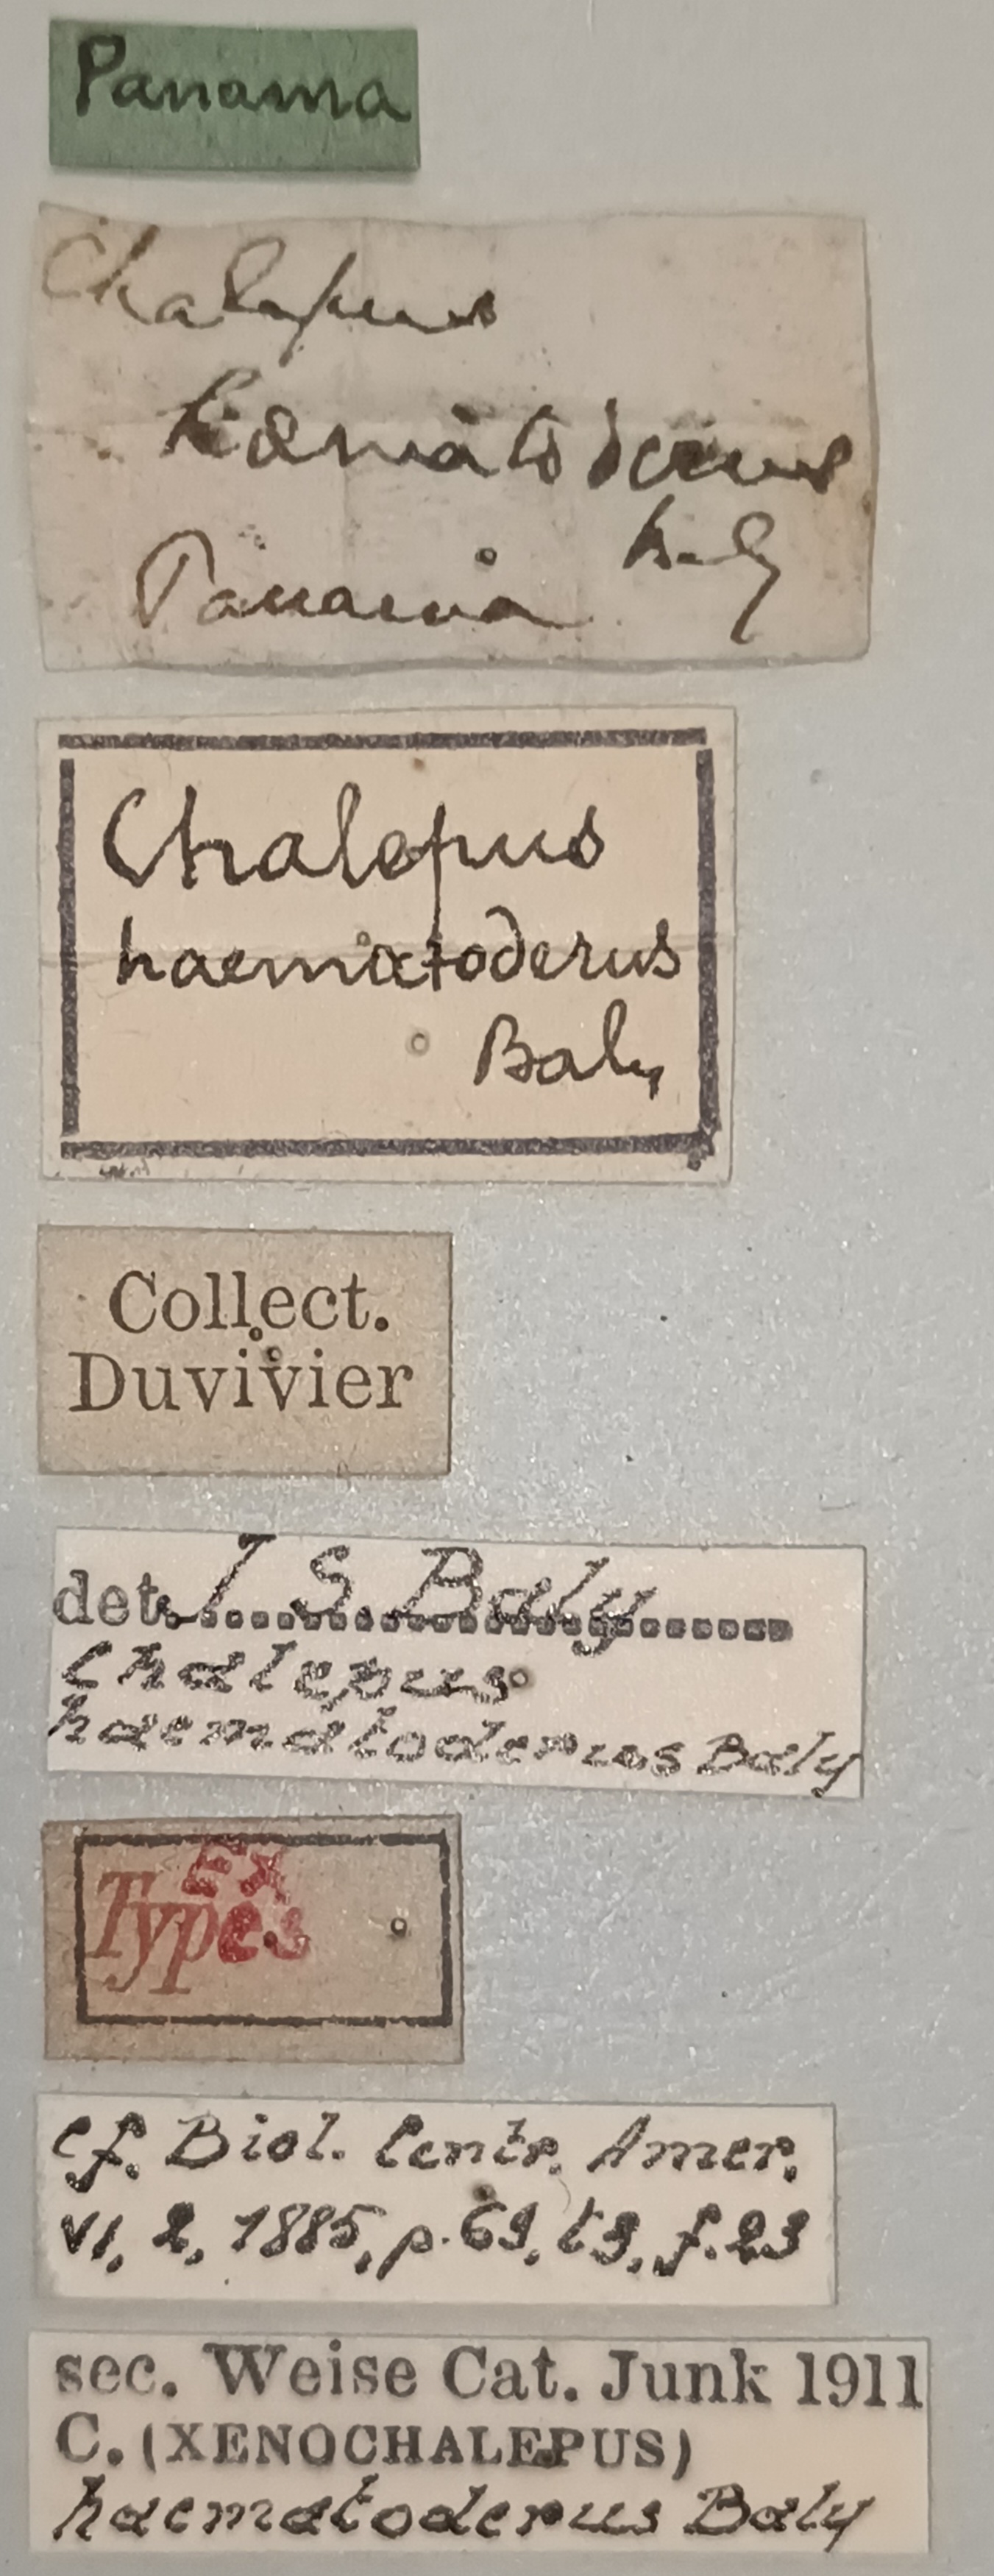 Panama
Chalepus
hæmatoderus
Baly
Panama
Chalepus
haematoderus
Baly
Collect.
Duvivier
det. J. S. Baly
Chalepus
haematoderus Baly
Ex
Types
cf. Biol. Centr. Amer.
VI, 2, 1885, p. 69, t3, f. 23
sec. Weise Cat. Junk 1911
C. (XENOCHALEPUS)
haematoderus Baly